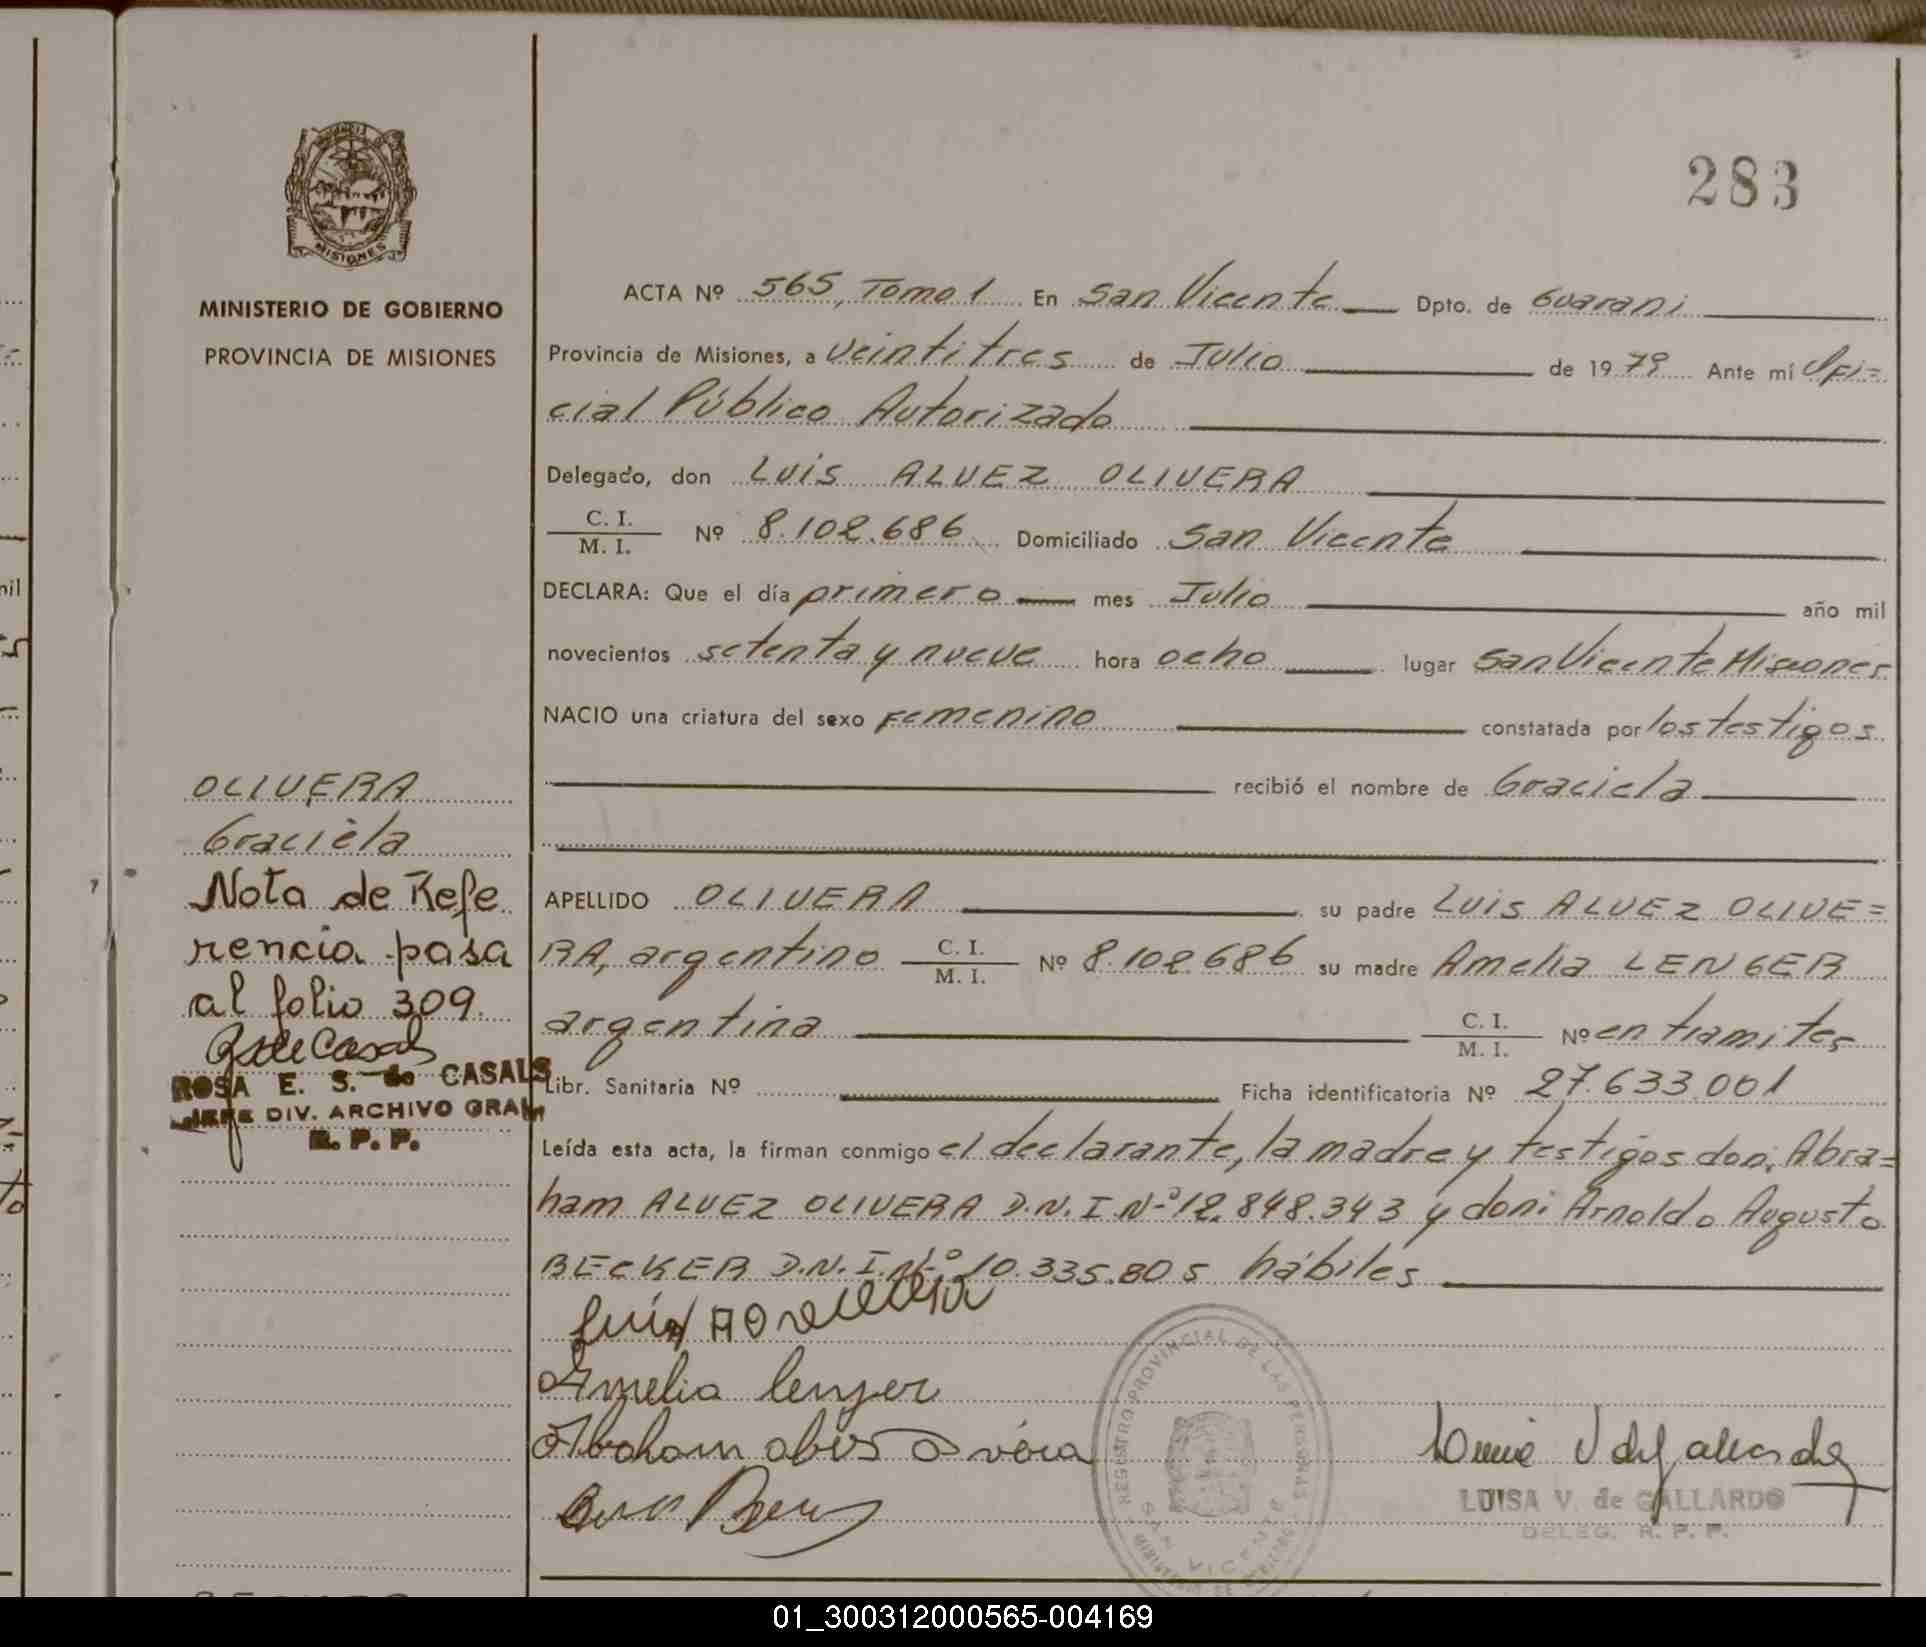 283
MISIONES
MINISTERIO DE GOBIERNO
PROVINCIA DE MISIONES
ACTA Nº 565, Tomo 1 En San Vicente Dpto. de Guarani
Provincia de Misiones, a veintitres de Julio de 1979 Ante mí Ofi=
cial Público Autorizado
Delegado, don LUIS ALVEZ OLIVERA
C. I.
M. I. Nº 8.102.686 Domiciliado San Vicente
DECLARA: Que el día primero mes Julio año mil
novecientos setenta y nueve hora ocho lugar San Vicente Misiones
NACIO una criatura del sexo Femenino constatada por los testigos
recibió el nombre de Graciela
APELLIDO OLIVERA su padre Luis ALVEZ OLIVE=
RA, argentino C. I. M. I. Nº 8.102.686 su madre Amelia LENGER
argentina C. I. M. I. Nº en tramites
Libr. Sanitaria Nº Ficha identificatoria Nº 27.633.001
Leída esta acta, la firman conmigo el declarante, la madre y testigos don: Abra=
ham ALVEZ OLIVERA D.N.I.Nº 12.848.343 y don: Arnoldo Augusto
BECKER D.N.I.Nº 10.335.805 hábiles
Amelia lenger
LUISA V. de GALLARDO
DELEG. R. P. P.
REGISTRO PROVINCIAL DE LAS PERSONAS
SAN VICENTE
OLIVERA
Graciela
Nota de Refe
rencia pasa
al folio 309.
ROSA E. S. de CASALS
JEFE DIV. ARCHIVO GRAL
R. P. P.
01_300312000565-004169